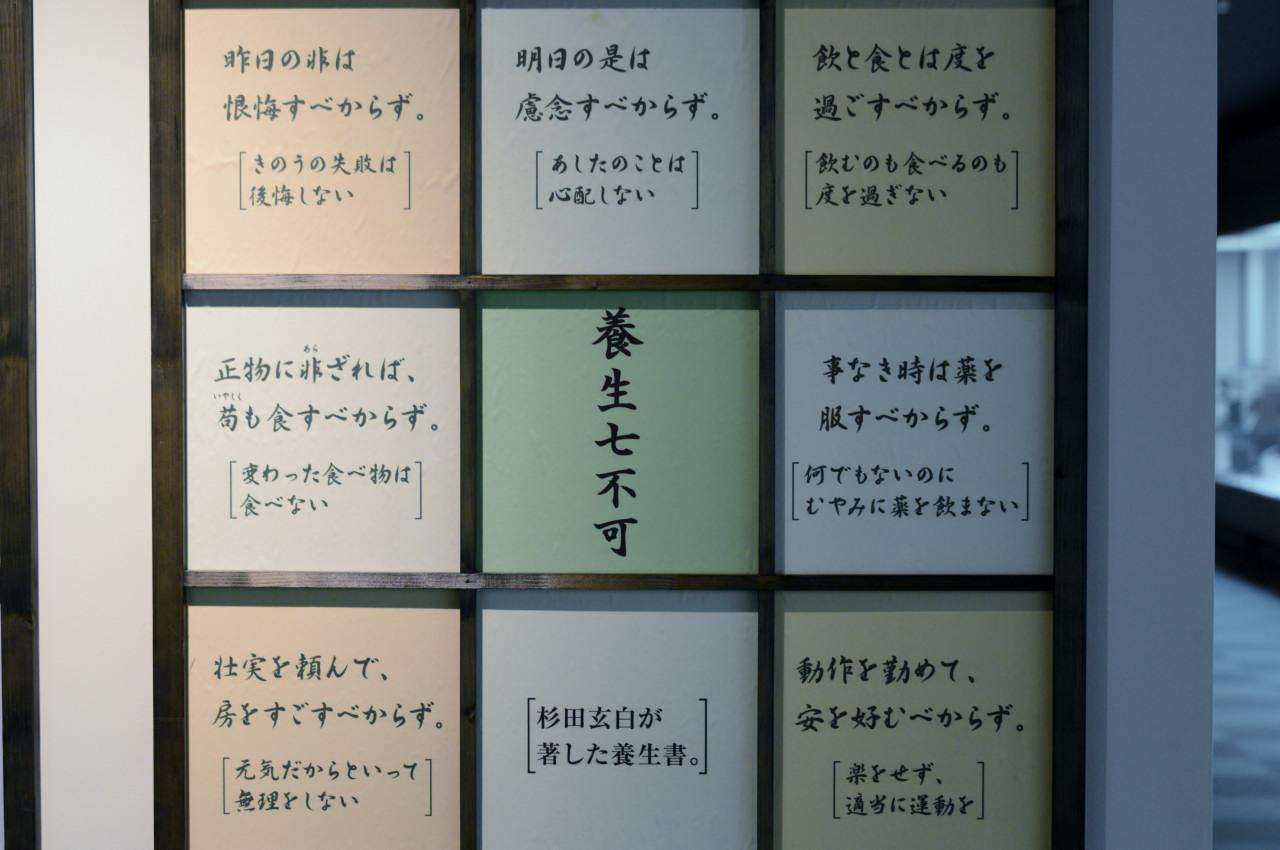 昨日の非は
恨悔すべからず。
[きのうの失敗は
後悔しない]
明日の是は
慮念すべからず。
[あしたのことは
心配しない]
飲と食とは度を
過ごすべからず。
[飲むのも食べるのも
度を過ぎない]
正物に非ざれば、
あら
苟も食すべからず。
いやしく
[変わった食べ物は
食べない]
養生七不可
事なき時は薬を
服すべからず。
[何でもないのに
むやみに薬を飲まない]
壮実を頼んで、
房をすごすべからず。
[元気だからといって
無理をしない]
[杉田玄白が
著した養生書。]
動作を勤めて、
安を好むべからず。
[楽をせず、
適当に運動を]